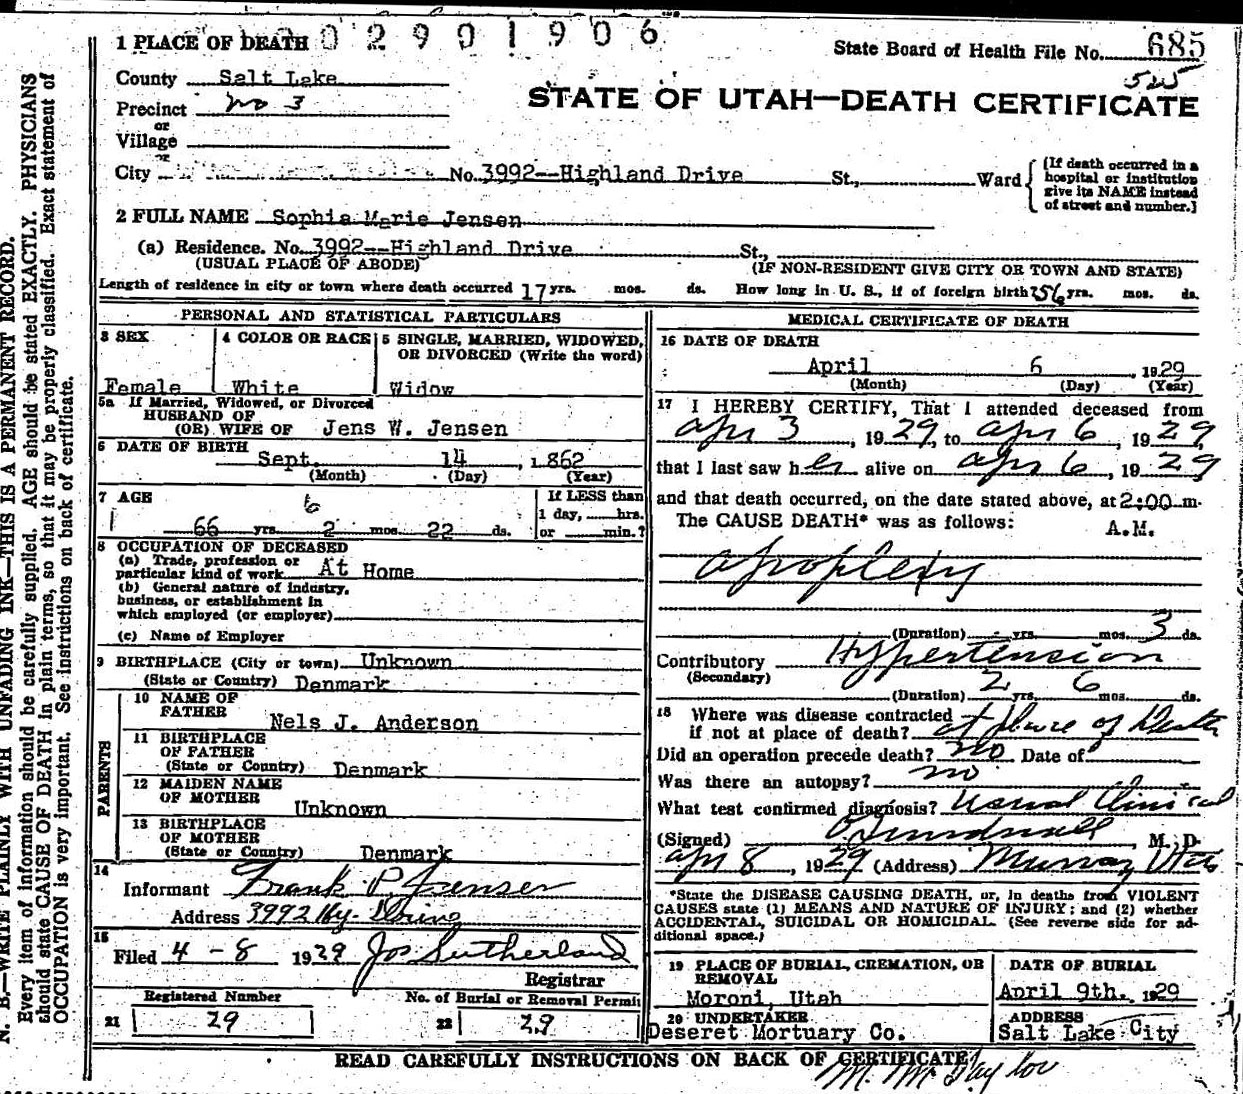 0 2 9 0 1 9 0 6
1 PLACE OF DEATH
State Board of Health File No. 685
545
County Salt Lake
STATE OF UTAH—DEATH CERTIFICATE
Precinct No 3
or
Village
or
City No. 3992--Highland Drive St., Ward
(If death occurred in a hospital or institution give its NAME instead of street and number.)
2 FULL NAME Sophia Marie Jensen
(a) Residence. No. 3992--Highland Drive St.,
(USUAL PLACE OF ABODE) (IF NON-RESIDENT GIVE CITY OR TOWN AND STATE)
Length of residence in city or town where death occurred 17 yrs. mos. ds. How long in U. S., if of foreign birth? 56 yrs. mos. ds.
PERSONAL AND STATISTICAL PARTICULARS
3 SEX 4 COLOR OR RACE 5 SINGLE, MARRIED, WIDOWED,
OR DIVORCED (Write the word)
Female White Widow
5a If Married, Widowed, or Divorced
HUSBAND OF
(OR) WIFE OF Jens W. Jensen
6 DATE OF BIRTH
Sept. 14, 1862
(Month) (Day) (Year)
7 AGE 6 If LESS than
1 day, hrs.
66 yrs. 2 mos. 22 ds. or min.?
8 OCCUPATION OF DECEASED
(a) Trade, profession or
particular kind of work At Home
(b) General nature of industry,
business, or establishment in
which employed (or employer)
(c) Name of Employer
9 BIRTHPLACE (City or town) Unknown
(State or Country) Denmark
PARENTS
10 NAME OF
FATHER Nels J. Anderson
11 BIRTHPLACE
OF FATHER
(State or Country) Denmark
12 MAIDEN NAME
OF MOTHER Unknown
13 BIRTHPLACE
OF MOTHER
(State or Country) Denmark
14
Informant Frank P. Jensen
Address 3992 Hy- Drive
15
Filed 4-8 1929 Jos Sutherland
Registrar
Registered Number No. of Burial or Removal Permit
21 29 22 29
MEDICAL CERTIFICATE OF DEATH
16 DATE OF DEATH
April 6, 1929
(Month) (Day) (Year)
17 I HEREBY CERTIFY, That I attended deceased from
Apr 3, 1929, to Apr 6, 1929,
that I last saw her alive on Apr 6, 1929
and that death occurred, on the date stated above, at 2:00 m.
The CAUSE DEATH* was as follows: A.M.
Apoplexy
(Duration) yrs. mos. 3 ds.
Contributory Hypertension
(Secondary)
(Duration) 2 yrs. 6 mos. ds.
18 Where was disease contracted
if not at place of death? at place of Death
Did an operation precede death? no Date of
Was there an autopsy? no
What test confirmed diagnosis? Usual Clinical
(Signed) M. D.
Apr 8, 1929 (Address) Murray Utah
*State the DISEASE CAUSING DEATH, or, in deaths from VIOLENT
CAUSES state (1) MEANS AND NATURE OF INJURY; and (2) whether
ACCIDENTAL, SUICIDAL OR HOMICIDAL. (See reverse side for ad-
ditional space.)
19 PLACE OF BURIAL, CREMATION, OR
REMOVAL
Moroni, Utah
DATE OF BURIAL
April 9th. 1929
20 UNDERTAKER
Deseret Mortuary Co.
ADDRESS
Salt Lake City
READ CAREFULLY INSTRUCTIONS ON BACK OF CERTIFICATE
N. B.—WRITE PLAINLY WITH UNFADING INK—THIS IS A PERMANENT RECORD.
Every item of information should be carefully supplied. AGE should be stated EXACTLY. PHYSICIANS
should state CAUSE OF DEATH in plain terms, so that it may be properly classified. Exact statement of
OCCUPATION is very important. See instructions on back of certificate.